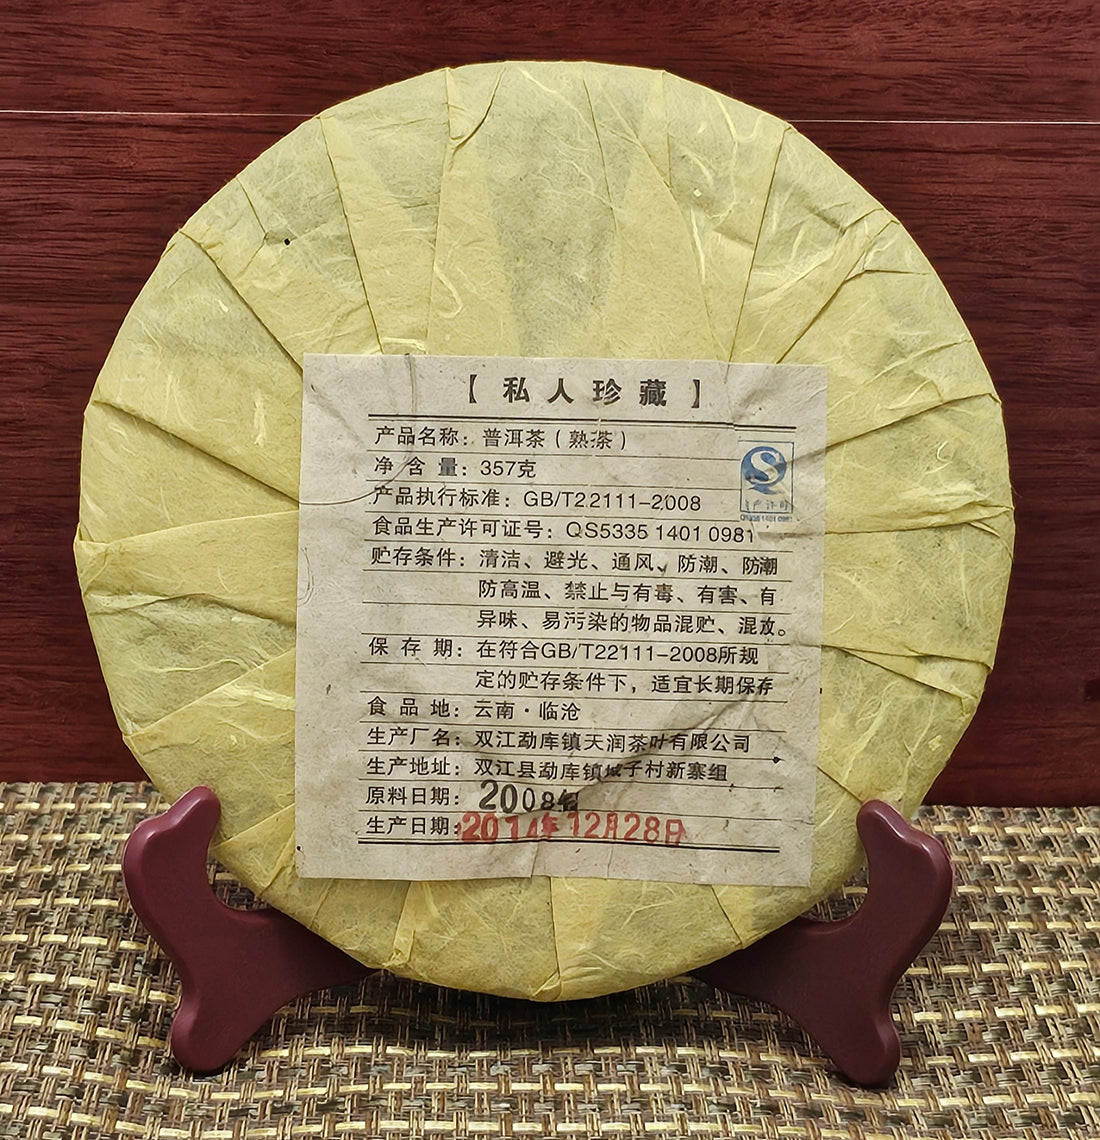 【私人珍藏】
产品名称：普洱茶（熟茶）
净含量：357克
产品执行标准：GB/T22111-2008
食品生产许可证号：QS5335 1401 0981
生产许可
QS5335 1401 0981
贮存条件：清洁、避光、通风、防潮、防潮
防高温、禁止与有毒、有害、有
异味、易污染的物品混贮、混放。
保存期：在符合GB/T22111-2008所规
定的贮存条件下，适宜长期保存
食品地：云南·临沧
生产厂名：双江勐库镇天润茶叶有限公司
生产地址：双江县勐库镇城子村新寨组
原料日期：2008年
生产日期：2014年12月28日